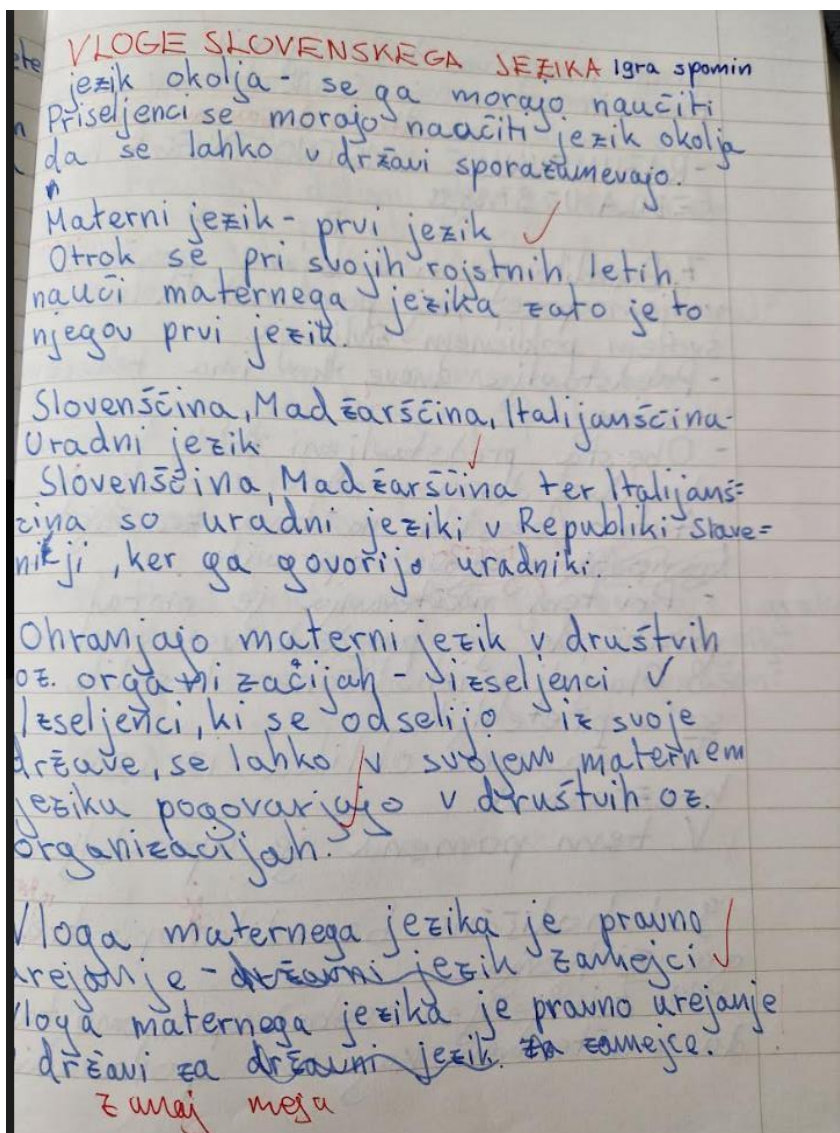 VLOGE SLOVENSKEGA JEZIKA Igra spomin
jezik okolja - se ga morajo naučiti
Priseljenci se morajo naačiti jezik okolja
da se lahko v državi sporazumevajo.
Materni jezik - prvi jezik
Otrok se pri svojih rojstnih letih
nauči maternega jezika zato je to
njegov prvi jezik.
Slovenščina, Madžarščina, Italijanščina -
Uradni jezik
Slovenščina, Madžarščina ter Italijanš=
čina so uradni jeziki v Republiki Slove=
niji, ker ga govorijo uradniki.
Ohranjajo materni jezik v društvih
oz. organizačijah - izseljenci
Izseljenci, ki se odselijo iz svoje
države, se lahko v svojem maternem
jeziku pogovarjajo v društvih oz.
organizacijah.
Vloga maternega jezika je pravno
urejanje - državni jezik zamejci
Vloga maternega jezika je pravno urejanje
državi za državni jezik. za zamejce.
zunaj meja